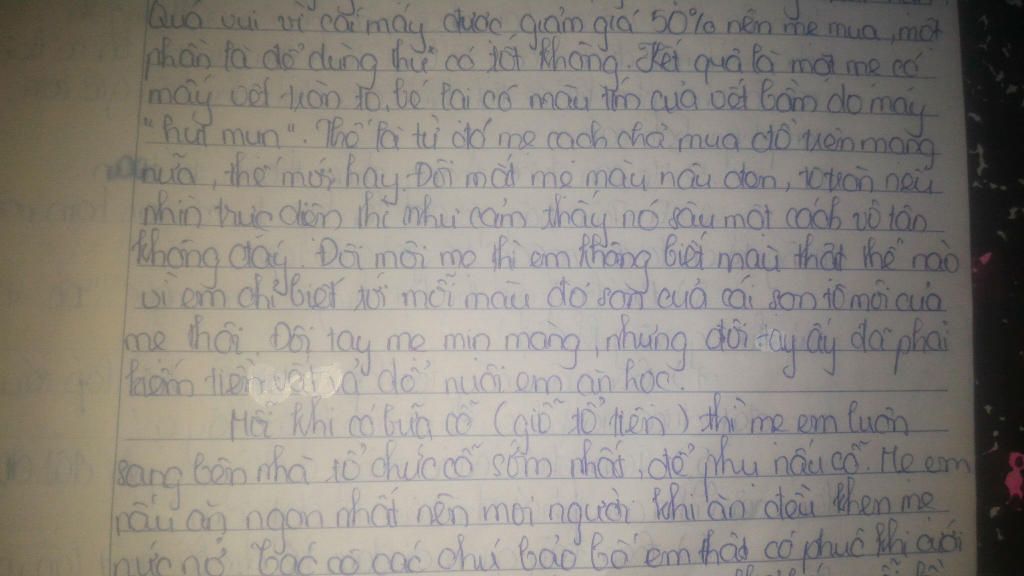 Quá vui vì cái máy được giảm giá 50% nên mẹ mua, một
phần là để dùng thử có tốt không. Kết quả là mặt mẹ có
mấy vết tròn to, bé lại có màu tím của vết bầm do máy
"hút mụn". Thế là từ đó mẹ cạch chả mua đồ trên mạng
nữa, thế mới hay. Đôi mắt mẹ màu nâu đen, to tròn nếu
nhìn trực diện thì như cảm thấy nó sâu một cách vô tận
không đáy. Đôi môi mẹ thì em không biết màu thật thế nào
vì em chỉ biết tới mỗi màu đỏ son của cái son tô môi của
mẹ thôi. Đôi tay mẹ mịn màng, nhưng đôi tay ấy đã phải
kiếm tiền để nuôi em ăn học.
Mỗi khi có bữa cỗ (giỗ tổ tiên) thì mẹ em luôn
sang bên nhà tổ chức cỗ sớm nhất, để phụ nấu cỗ. Mẹ em
nấu ăn ngon nhất nên mọi người khi ăn đều khen mẹ
nức nở. Bác cô các chú bảo bố em thật có phúc khi cưới